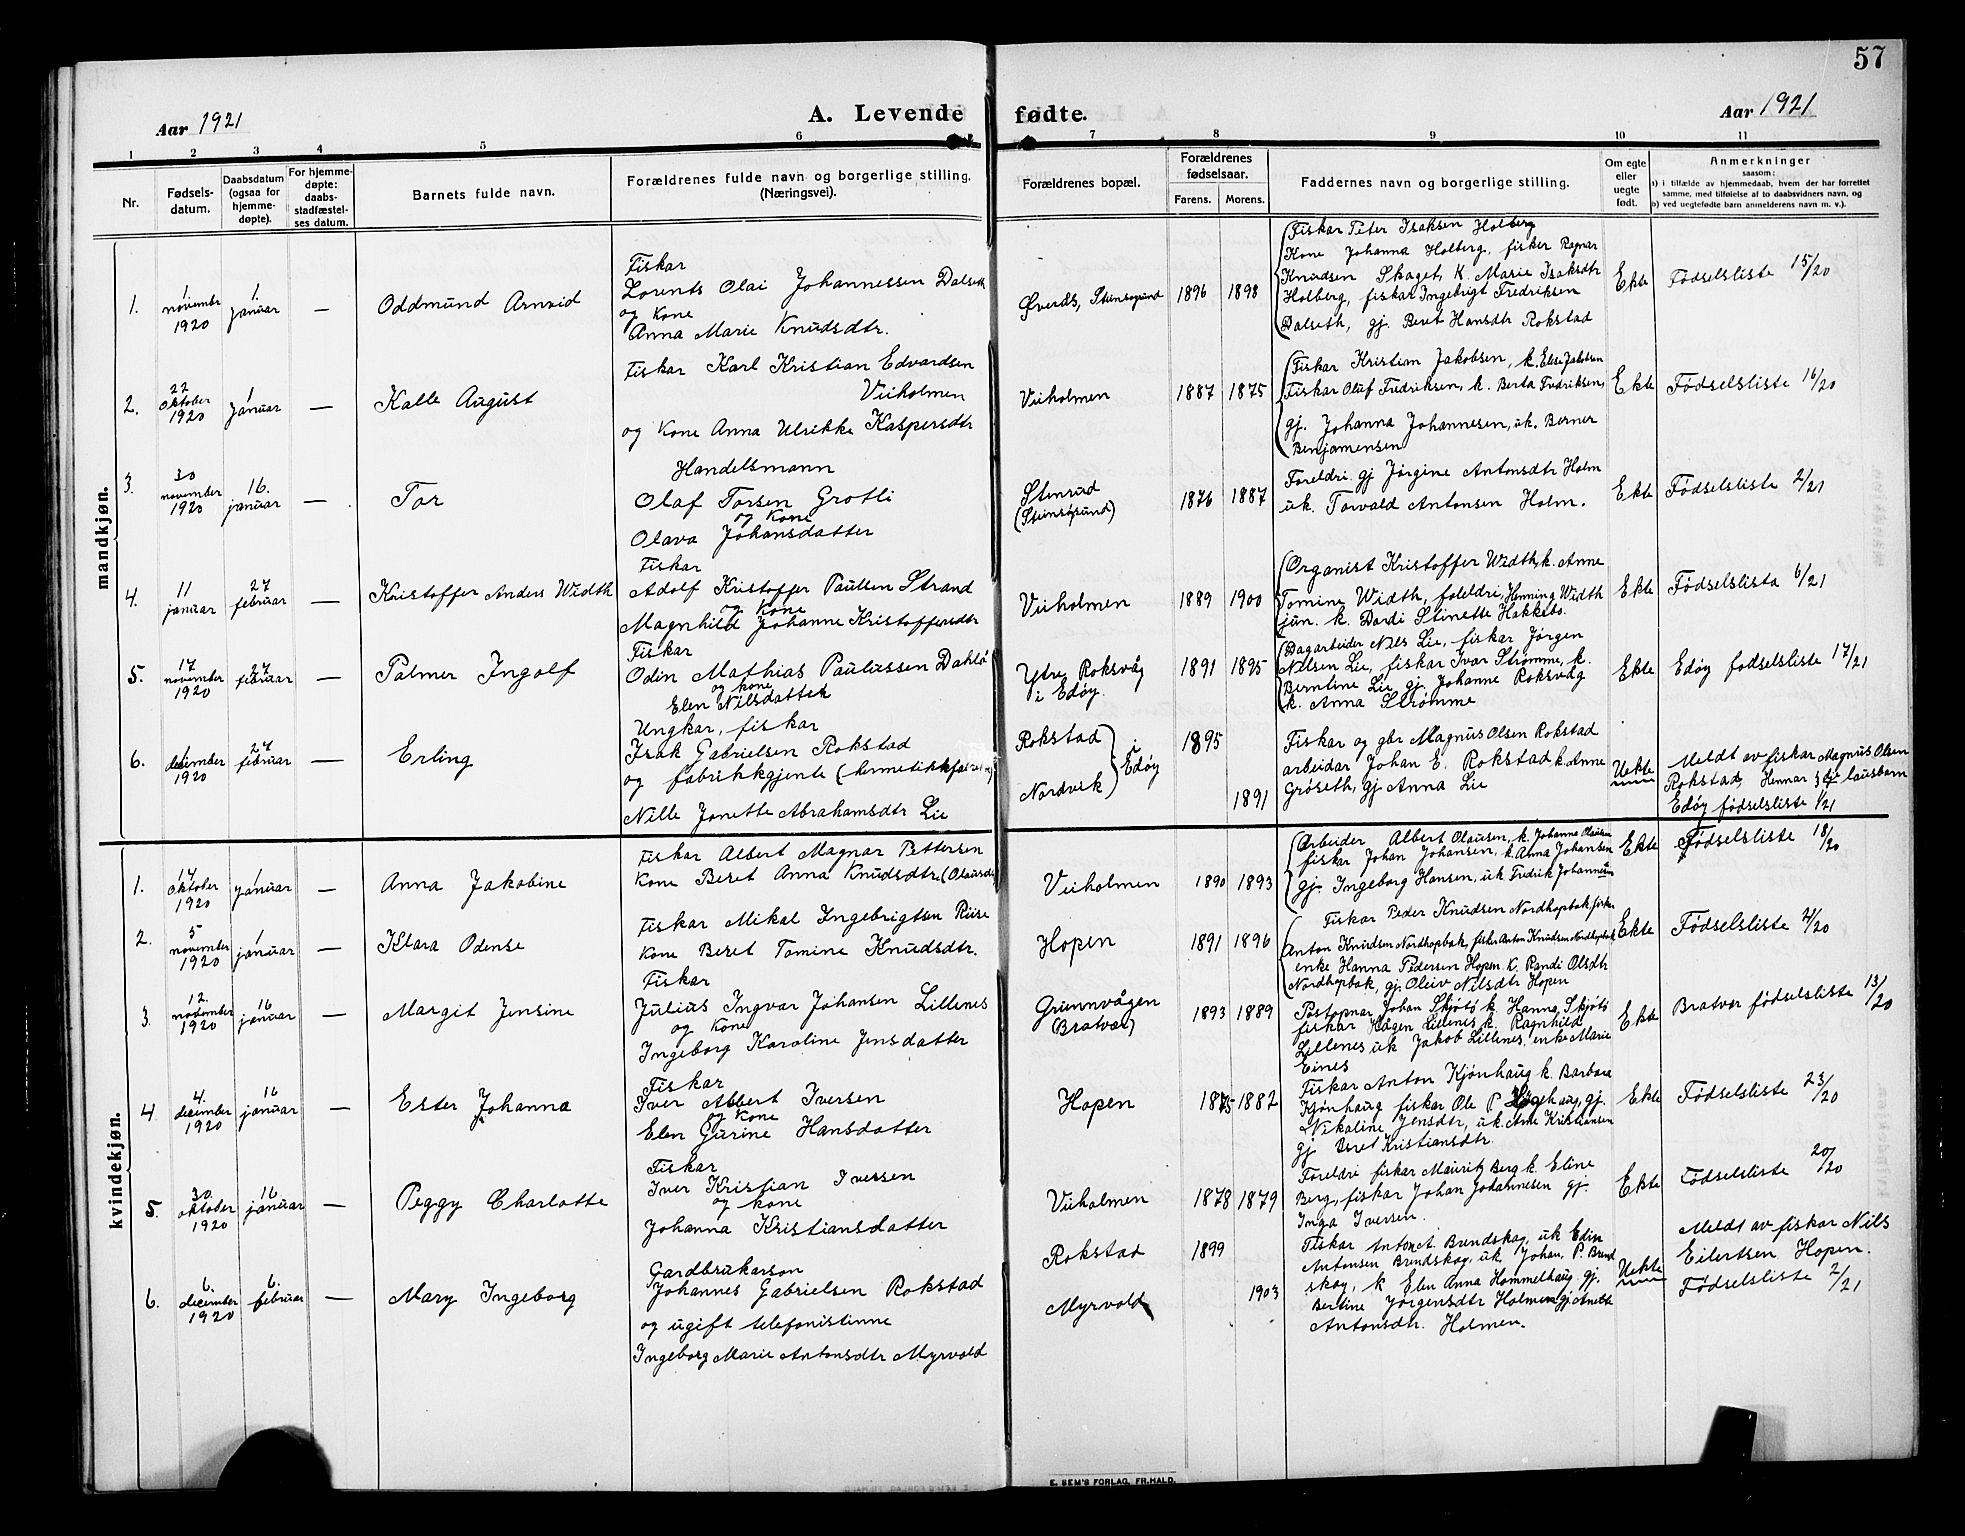 57
Aar 1921
A. Levende fødte.
Aar 1921
1 2 3 4 5 6 7 8 9 10 11
Nr.
Fødsels-
datum.
Daabsdatum
(ogsaa for
hjemme-
døpte).
For hjemme-
døpte:
daabs-
stadfæstel-
ses datum.
Barnets fulde navn.
Forældrenes fulde navn og borgerlige stilling.
(Næringsvei).
Forældrenes bopæl.
Forældrenes
fødselsaar.
Farens. Morens.
Faddernes navn og borgerlige stilling.
Om egte
eller
uegte
født.
Anmerkninger
saasom:
a) i tilfælde av hjemmedaab, hvem der har forrettet
samme, med tilføielse af to daabsvidners navn, og
b) ved uegtefødte barn anmelderens navn m. v.).
mandkjøn.
1.
1
november
1920
1.
januar
—
Oddmund Arnvid
Fiskar
Lorents Olai Johannessen Dalseth
og Kone
Anna Marie Knudsdtr.
Øverås, Steinsgrund
1896 1898
Fiskar Peter Isaksen Holberg
Kone Johanna Holberg, fisker Ragnar
Knudsen Skaget, K. Marie Isaksdtr
Holberg, fiskar Ingebrigt Fredriksen
Dalseth, gj. Beret Hansdtr Rokstad
Ekte
Fødselsliste 15/20
2.
22
oktober
1920
1
januar
—
Kalle August
Fiskar Karl Kristian Edvardsen
Veiholmen
og Kone Anna Ulrikke Kaspersdtr
Veiholmen
1887 1875
Fiskar Kristian Jakobsen, k. Elise Jakobsen
Fiskar Oluf Fredriksen, k. Berta Fredriksen,
gj. Johanna Johannesen, uk. Berner
Benjamensen
Ekte
Fødselsliste 16/20
3.
30
november
1920
16.
januar
—
Tor
Handelsmann
Olaf Torsen Grotli
og Kone
Olava Johansdatter
Stenrud
(Steinsgrund)
1876 1887
Foreldri gj Jørgine Antonsdtr Holm
uk. Torvald Antonsen Holm.
Ekte
Fødselsliste 2/21
4.
11
januar
27
februar
—
Kristoffer Anders Width
Fiskar
Adolf Kristoffer Paulsen Strand
og Kone
Magnhild Johanne Kristoffersdtr
Veiholmen
1889 1900
Organist Kristoffer Width, k. Anne
Tomine Width, foreldri, Henning Width
jun. k. Dordi Stinette Hakkebo.
Ekte
Fødselslista 6/21
5.
17
november
1920
27
februar
—
Palmer Ingolf
Fiskar
Odin Mathias Paulussen Dahlø
og kone
Elen Nilsdatter
Ytre Roksvåg
i Edøy.
1891 1895
Dagarbeider Nils Lie, fiskar Jørgen
Nilsen Lie, fiskar Ivar Strømme, k.
Berntine Lie gj. Johanne Roksvåg
k. Anna Strømme
Ekte
Edøy fødselsliste 17/21
6.
1
december
1920
27
februar
—
Erling
Ungkar, fiskar
Isak Gabrielsen Rokstad
og fabrikkgjente (hermetikkfabrikk)
Nille Jonette Abrahamsdtr Lie
Rokstad
Nordvik
i
Edøy
1895
1891
Fiskar og gbr Magnus Olsen Rokstad
arbeidar Johan E. Rokstad k. Anne
Grøseth, gj Anna Lie
Uekte
Meldt av fiskar Magnus Olsen
Rokstad, Hennar 3dje lausbarn
Edøy fødselsliste 1/21
kvindekjøn.
1.
17
oktober
1920
1
januar
—
Anna Jakobine
Fiskar Albert Magnar Pettersen
Kone Beret Anna Knudsdtr (Olausdtr)
Veiholmen
1890 1893
Arbeider Albert Olausen, k. Johanna Olausen
fiskar Johan Johansen, k. Anna Johansen
gj. Ingeborg Hansen, uk Fredrik Johannesen
Ekte
Fødselsliste 18/20
2.
5
november
1920
1
januar
—
Klara Odense
Fiskar Mikal Ingebrigtsen Riise
Kone Beret Tomine Knudsdtr.
Hopen
1891 1896
Fiskar Peder Knudsen Nordhopbak, fisker
Anton Knudsen Nordhopbak, fisker Anton Knudsen Nordhopbak,
enke Hanna Pedersen Hopen K. Randi Olsdtr
Nordhopbak, gj. Oleiv Nilsdtr Hopen
Ekte
Fødselsliste 21/20
3.
12.
november
1920
16
januar
—
Margit Jensine
Fiskar
Julius Ingvar Johansen Lillenes
og Kone
Ingeborg Karoline Jensdatter
Grunnvågen
(Bratvær)
1893 1889
Postopnar Johan Skjøtø k. Hanna Skjøtø
fiskar Hågen Lillenes k. Ragnhild
Lillenes uk Jakob Lillenes, enke Marie
Eines
Ekte
Bratvær fødselsliste 13/20
4.
4.
december
1920
16
januar
—
Ester Johanna
Fiskar
Iver Albert Iversen
og Kone
Elen Gurine Hansdatter
Hopen
1875 1882
Fiskar Anton Kjønhaug k. Barbara
Kjønhaug fiskar Ole P. haug, gj.
Nikaline Jensdtr, uk. Arne Kristiansen
gj Beret Kristiansdtr.
Ekte
Fødselsliste 23/20
5.
30.
oktober
1920
16
januar
—
Peggy Charlotte
Fiskar
Iver Kristian Iversen
og kone
Johanna Kristiansdatter
Veiholmen
1878 1879
Foreldri fiskar Mauritz Berg k. Eline
Berg, fiskar Johan Johannesen gj.
Inga Iversen.
Ekte
Fødselsliste 20/20
6.
6.
december
1920
6.
februar
—
Mary Ingeborg
Gardbrukarson
Johannes Gabrielsen Rokstad
og ugift telefonistinne
Ingeborg Marie Antonsdtr Myrvold
Rokstad
Myrvold
1899
1903
Fiskar Anton A. Brendskag, uk Edin
Antonsen Brendskag, uk. Johan. P. Brend
skag, k Elen Anna Hammelhaug gj.
Bertine Jørgensdtr Holmen, gj. Anette
Antonsdtr. Holmen.
Uekte
Meldt av fiskar Nils
Eilertsen Hopen.
Fødselsliste 2/21
E. SEM'S FORLAG, FR.HALD.